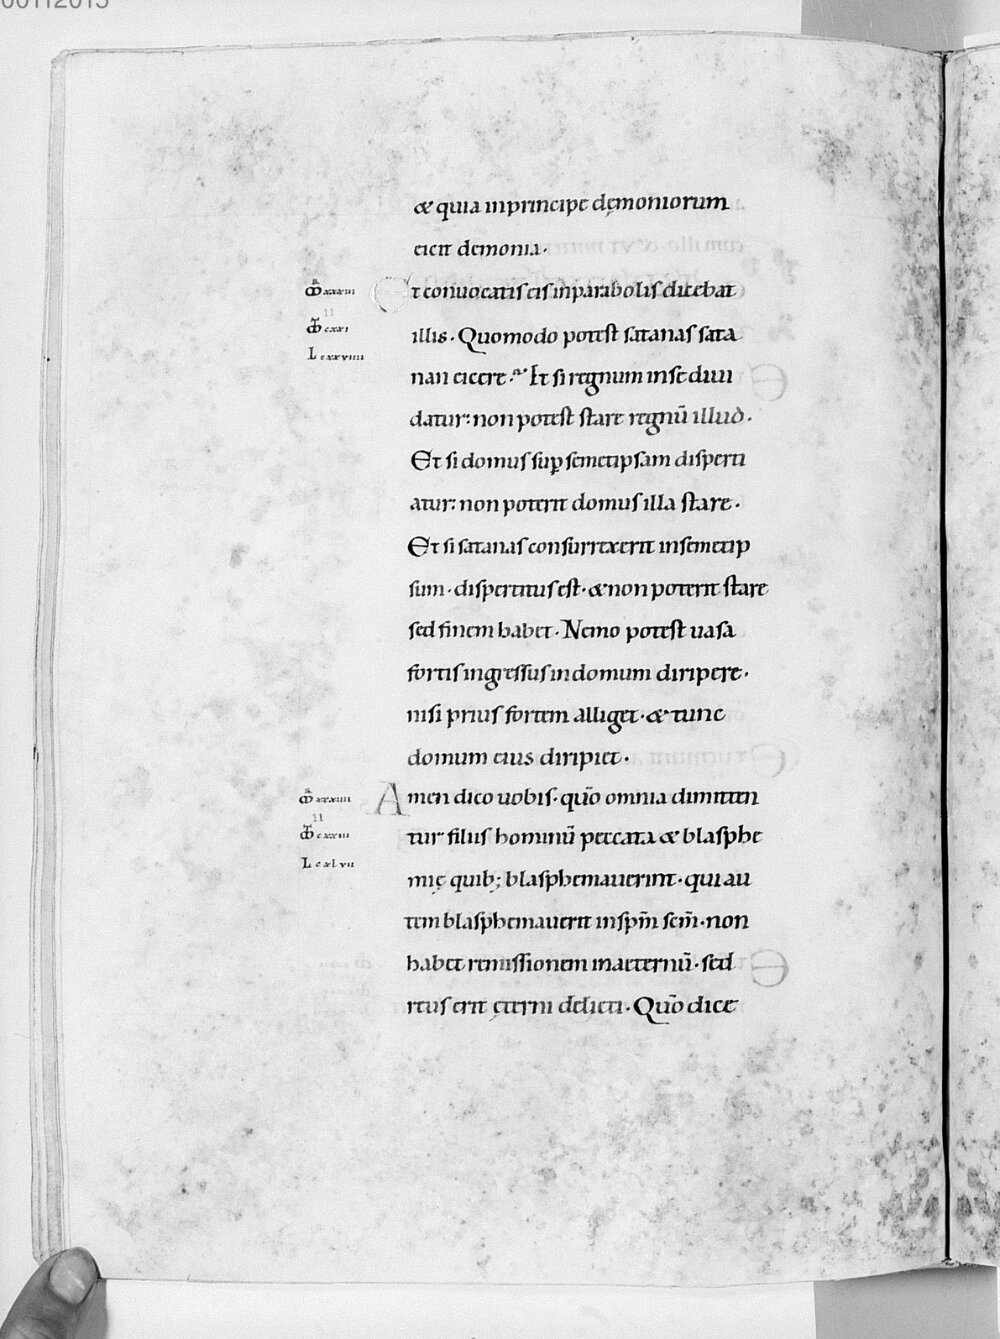 00112015
& quia inprincipe dęmoniorum
eicit demonia·
Et conuocatis eis inparabolis dicebat
illis· Quomodo potest satanas sata
nan eicere· Et si regnum inse diui
datur: non potest stare regnū illud·
Et si domus sup̱ semetipsam disperti
atur: non poterit domus illa stare·
Et si satanas consurrexerit insemetip
sum· dispertitus est· & non poterit stare
sed finem habet· Nemo potest uasa
fortis ingressus indomum diripere·
nisi prius fortem alliget· & tunc
domum eius diripiet·
Amen dico uobis· quō omnia dimitten
tur filiis hominū peccata & blasphe
mię quib; blasphemauerint· qui au
tem blasphemauerit inspm̄ scm̄· non
habet remissionem inaeternū· sed
reus erit ęterni delicti· Quō dice